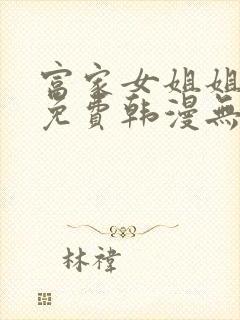 富家女姐姐
免費韩漫無
林禕